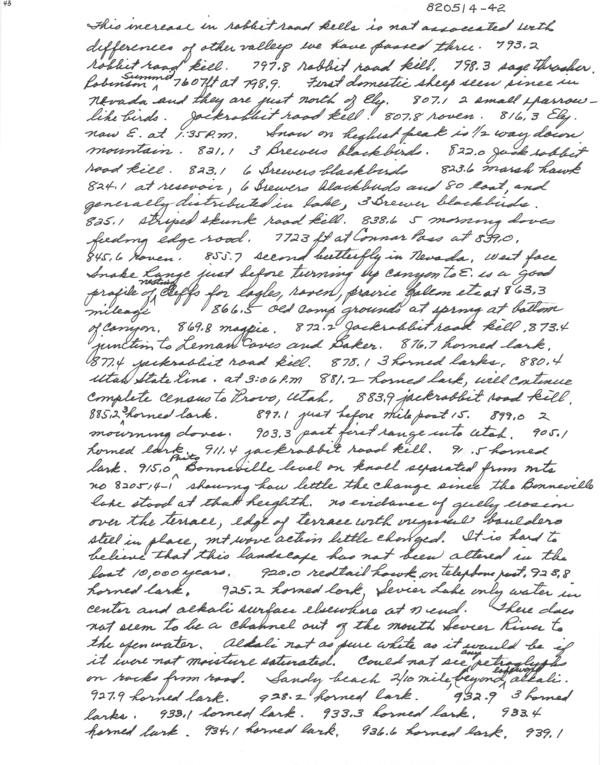 48
820514-42
This increase in rabbit road kills is not associated with
differences of other valleys we have passed thru. 793.2
rabbit road kill. 797.8 rabbit road kill, 798.3 sage thrasher.
Robinson Summit 7607 ft at 798.9. First domestic sheep seen since in
Nevada and they are just north of Ely. 807.1 2 small sparrow-
like birds. Jackrabbit road kill. 807.8 raven. 816.3 Ely.
now E. at 1:35 P.M. Snow on highest peak is 1/2 way down
mountain. 821.1 3 Brewers blackbirds. 822.0 Jack rabbit
road kill. 823.1 6 Brewers blackbirds 823.6 marsh hawk
824.1 at resevoir, 6 Brewers blackbirds and 80 coot, and
generally distributed in lake, 3 Brewer blackbirds.
825.1 striped skunk road kill. 838.6 5 morning doves
feeding edge road. 7723 ft at Connor Pass at 839.0.
845.6 raven. 855.7 second butterfly in Nevada. West face
Snake Range just before turning up canyon to E. is a good
profile of nesting cliffs for Eagles, raven, prairie falcon etc at 863.3
mileage 866.5 old camp grounds at spring at bottom
of canyon. 869.8 magpie. 872.2 Jackrabbit road kill, 873.4
junction to Leman Caves and Baker. 876.7 horned lark,
877.4 jackrabbit road kill. 878.1 3 horned larks, 880.4
Utah State line. at 3:06 P.M 881.2 horned lark, will continue
complete census to Provo, Utah. 883.9 jackrabbit road kill,
885.2 3 horned lark. 897.1 just before mile post 15. 899.0 2
mourning doves. 903.3 past first range into Utah. 905.1
horned lark, 911.4 jackrabbit road kill. 91 .5 horned
lark. 915.0 Photo Bonneville level on knoll separated from mts
no 820514-1 showing how little the change since the Bonneville
lake stood at that heighth. no evidence of gully erosion
over the terrace, edge of terrace with original boulders
still in place, mt wave action little changed. It is hard to
believe that this landscape has not been altered in the
last 10,000 years. 920.0 redtail hawk, on telephone post, 923.8
horned lark, 925.2 horned lark, Sevier Lake only water in
center and alkali surface elsewhere at N end. There does
not seem to be a channel out of the mouth Sevier River to
the open water. Alkali not as pure white as it would be if
it were not moisture saturated. Could not see any petroglyphs
on rocks from road. Sandy beach 2/10 mile, beyond alkali.
927.9 horned lark. 928.2 horned lark. 932.9 3 horned
larks. 933.1 horned lark. 933.3 horned lark, 933.4
horned lark. 934.1 horned lark, 936.6 horned lark, 939.1